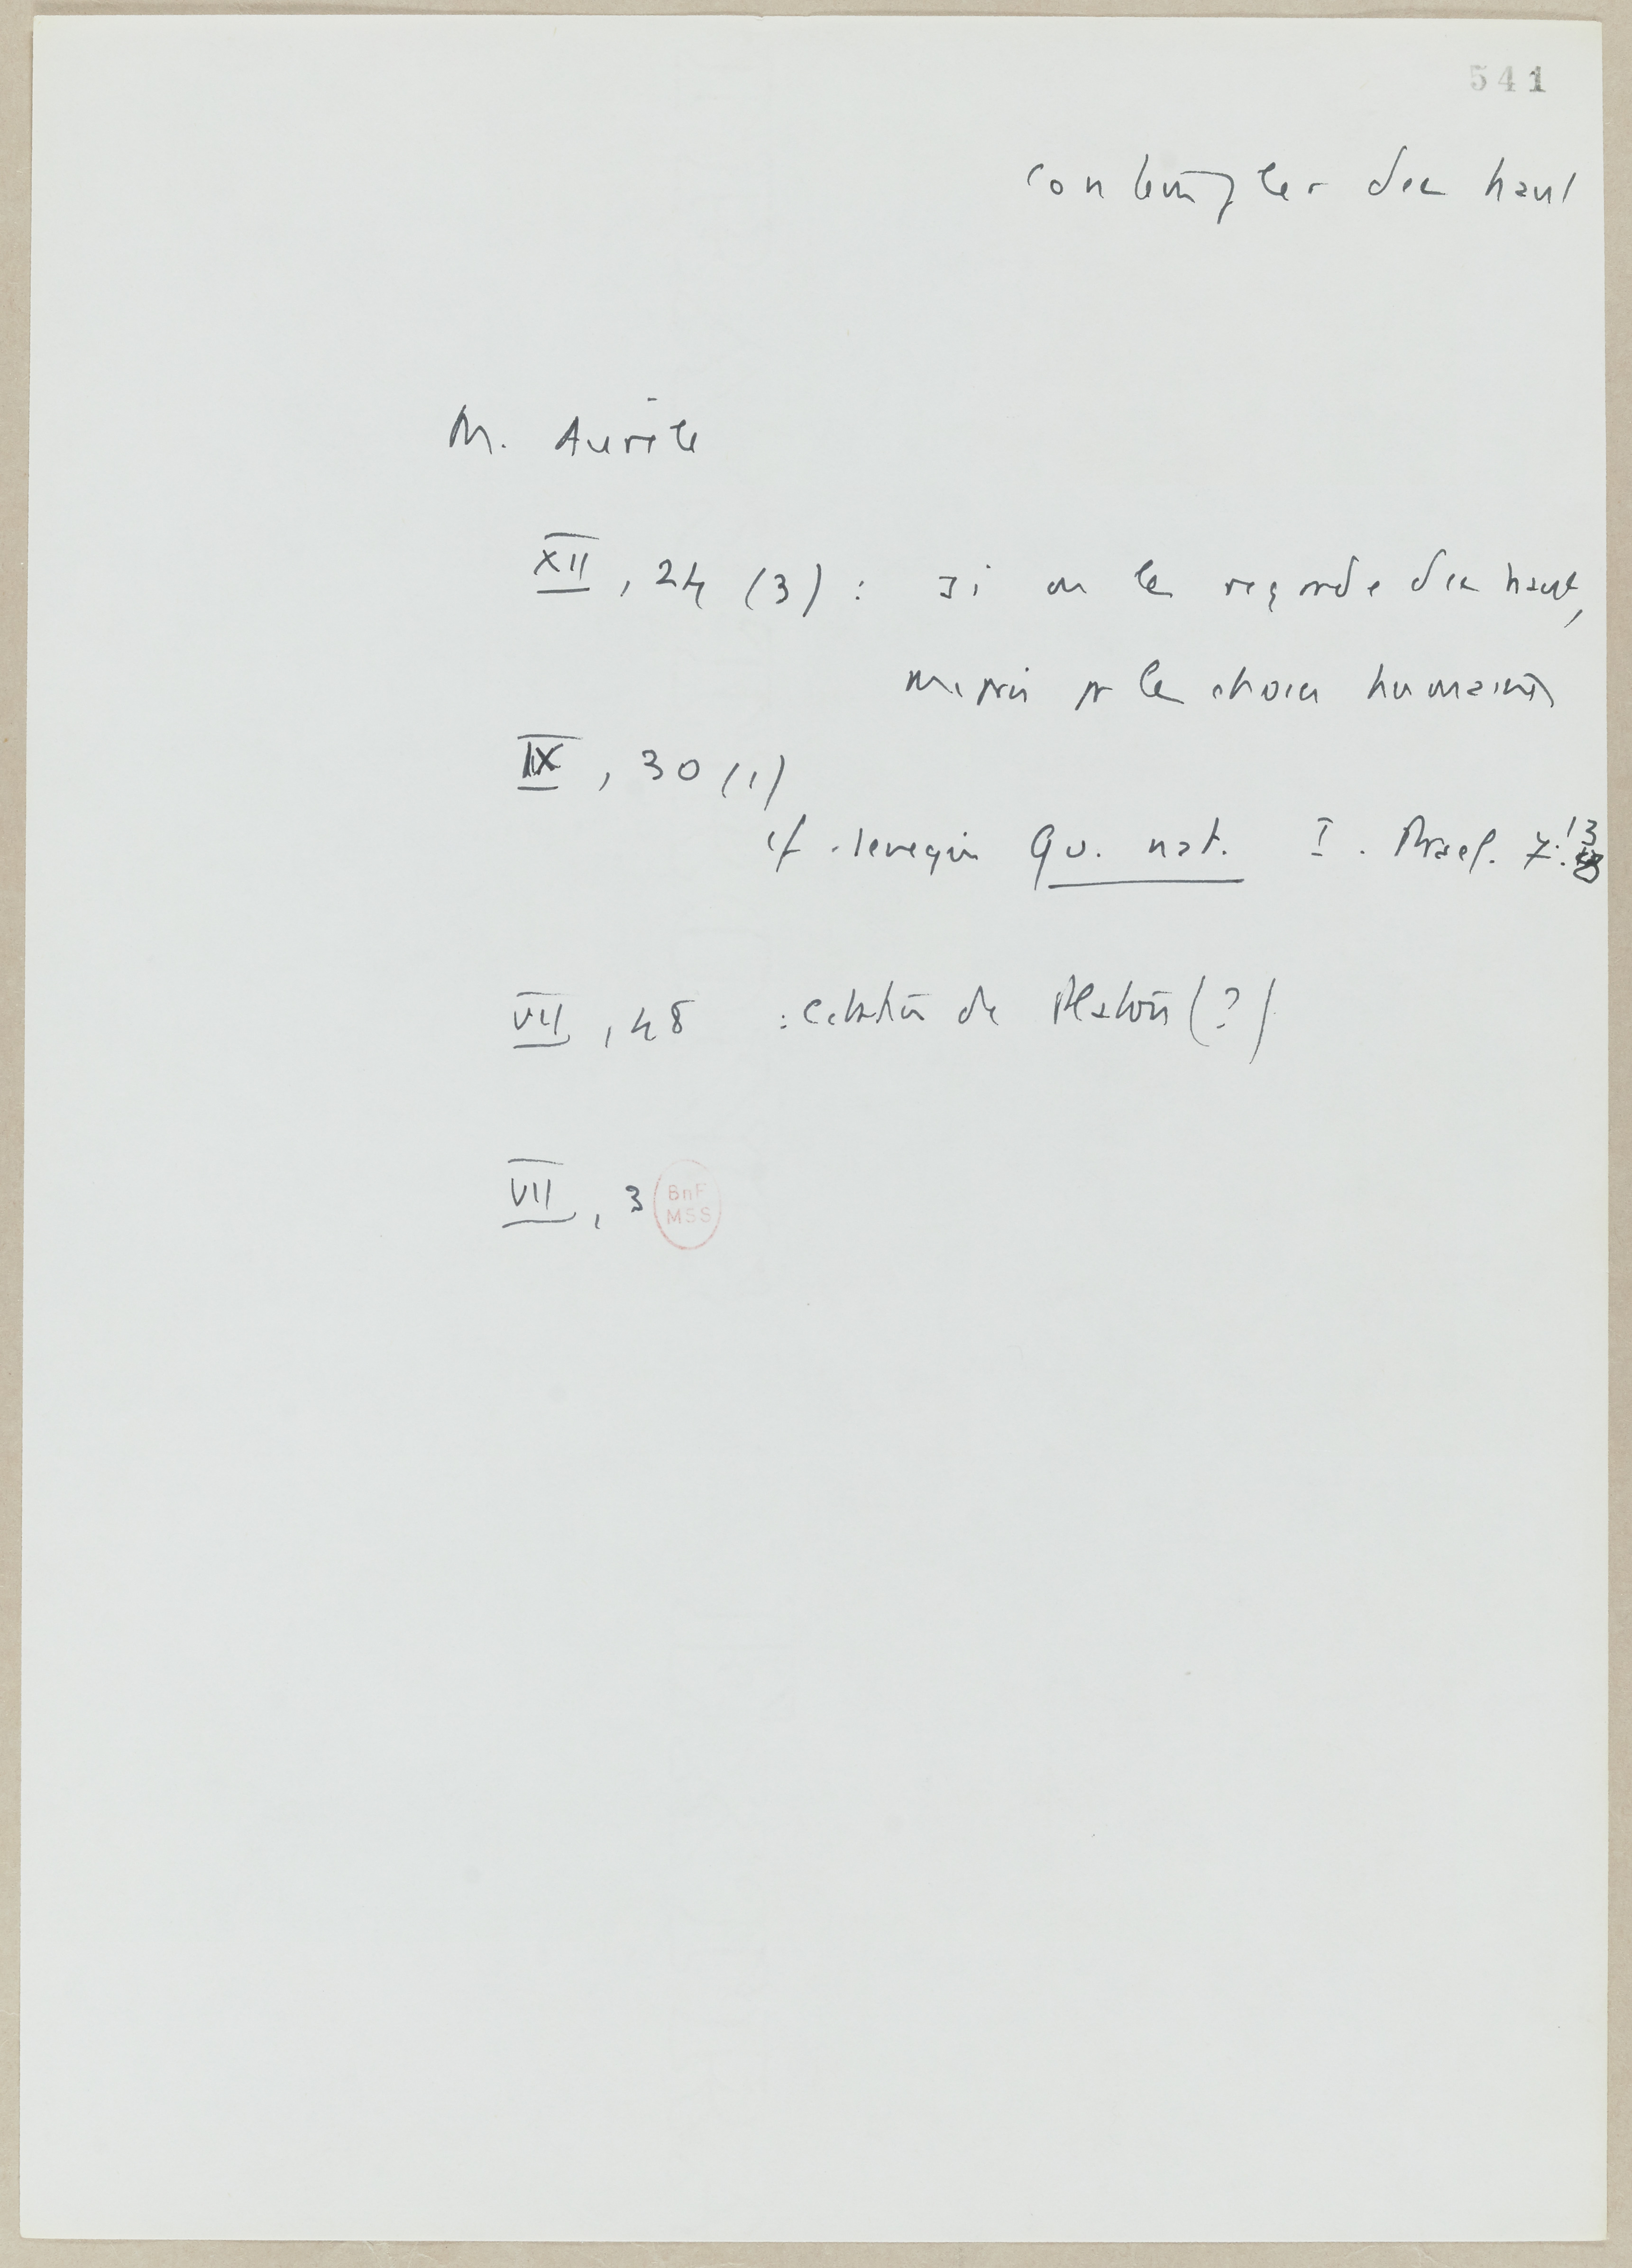 541
contempler d'en haut
M. Aurèle
XII, 24 (3) : si on les regarde d'en haut,
mépris pr les choses humaines
IX, 30 (1)
cf Sénèque Qu. nat. I. Praef. 7:13
VII, 48 : citation de Platon (?)
VII, 3
BnF
MSS